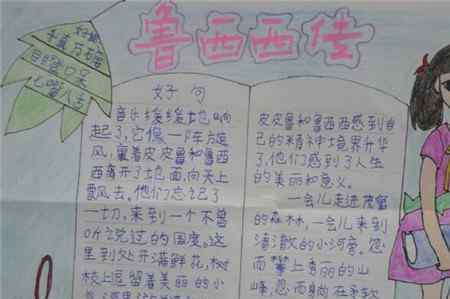 鲁西西传
好词
千真万确
目瞪口呆
好句
音乐缓缓地响
起了,它像一阵旋
风,裹着皮皮鲁和鲁西
西离开了地面,向天上
飘去。他们忘记了
一切,来到一个不曾
听说过的国度。这
里到处开满鲜花,树
枝上逗留着美丽的小
皮皮鲁和鲁西西感到自
己的精神境界升华
了,他们感到了人生
的美丽和意义。
一会儿走进茂密
的森林,一会儿来到
清澈的小河旁。忽
而攀上秀丽的山
峰,忽而躺在柔软